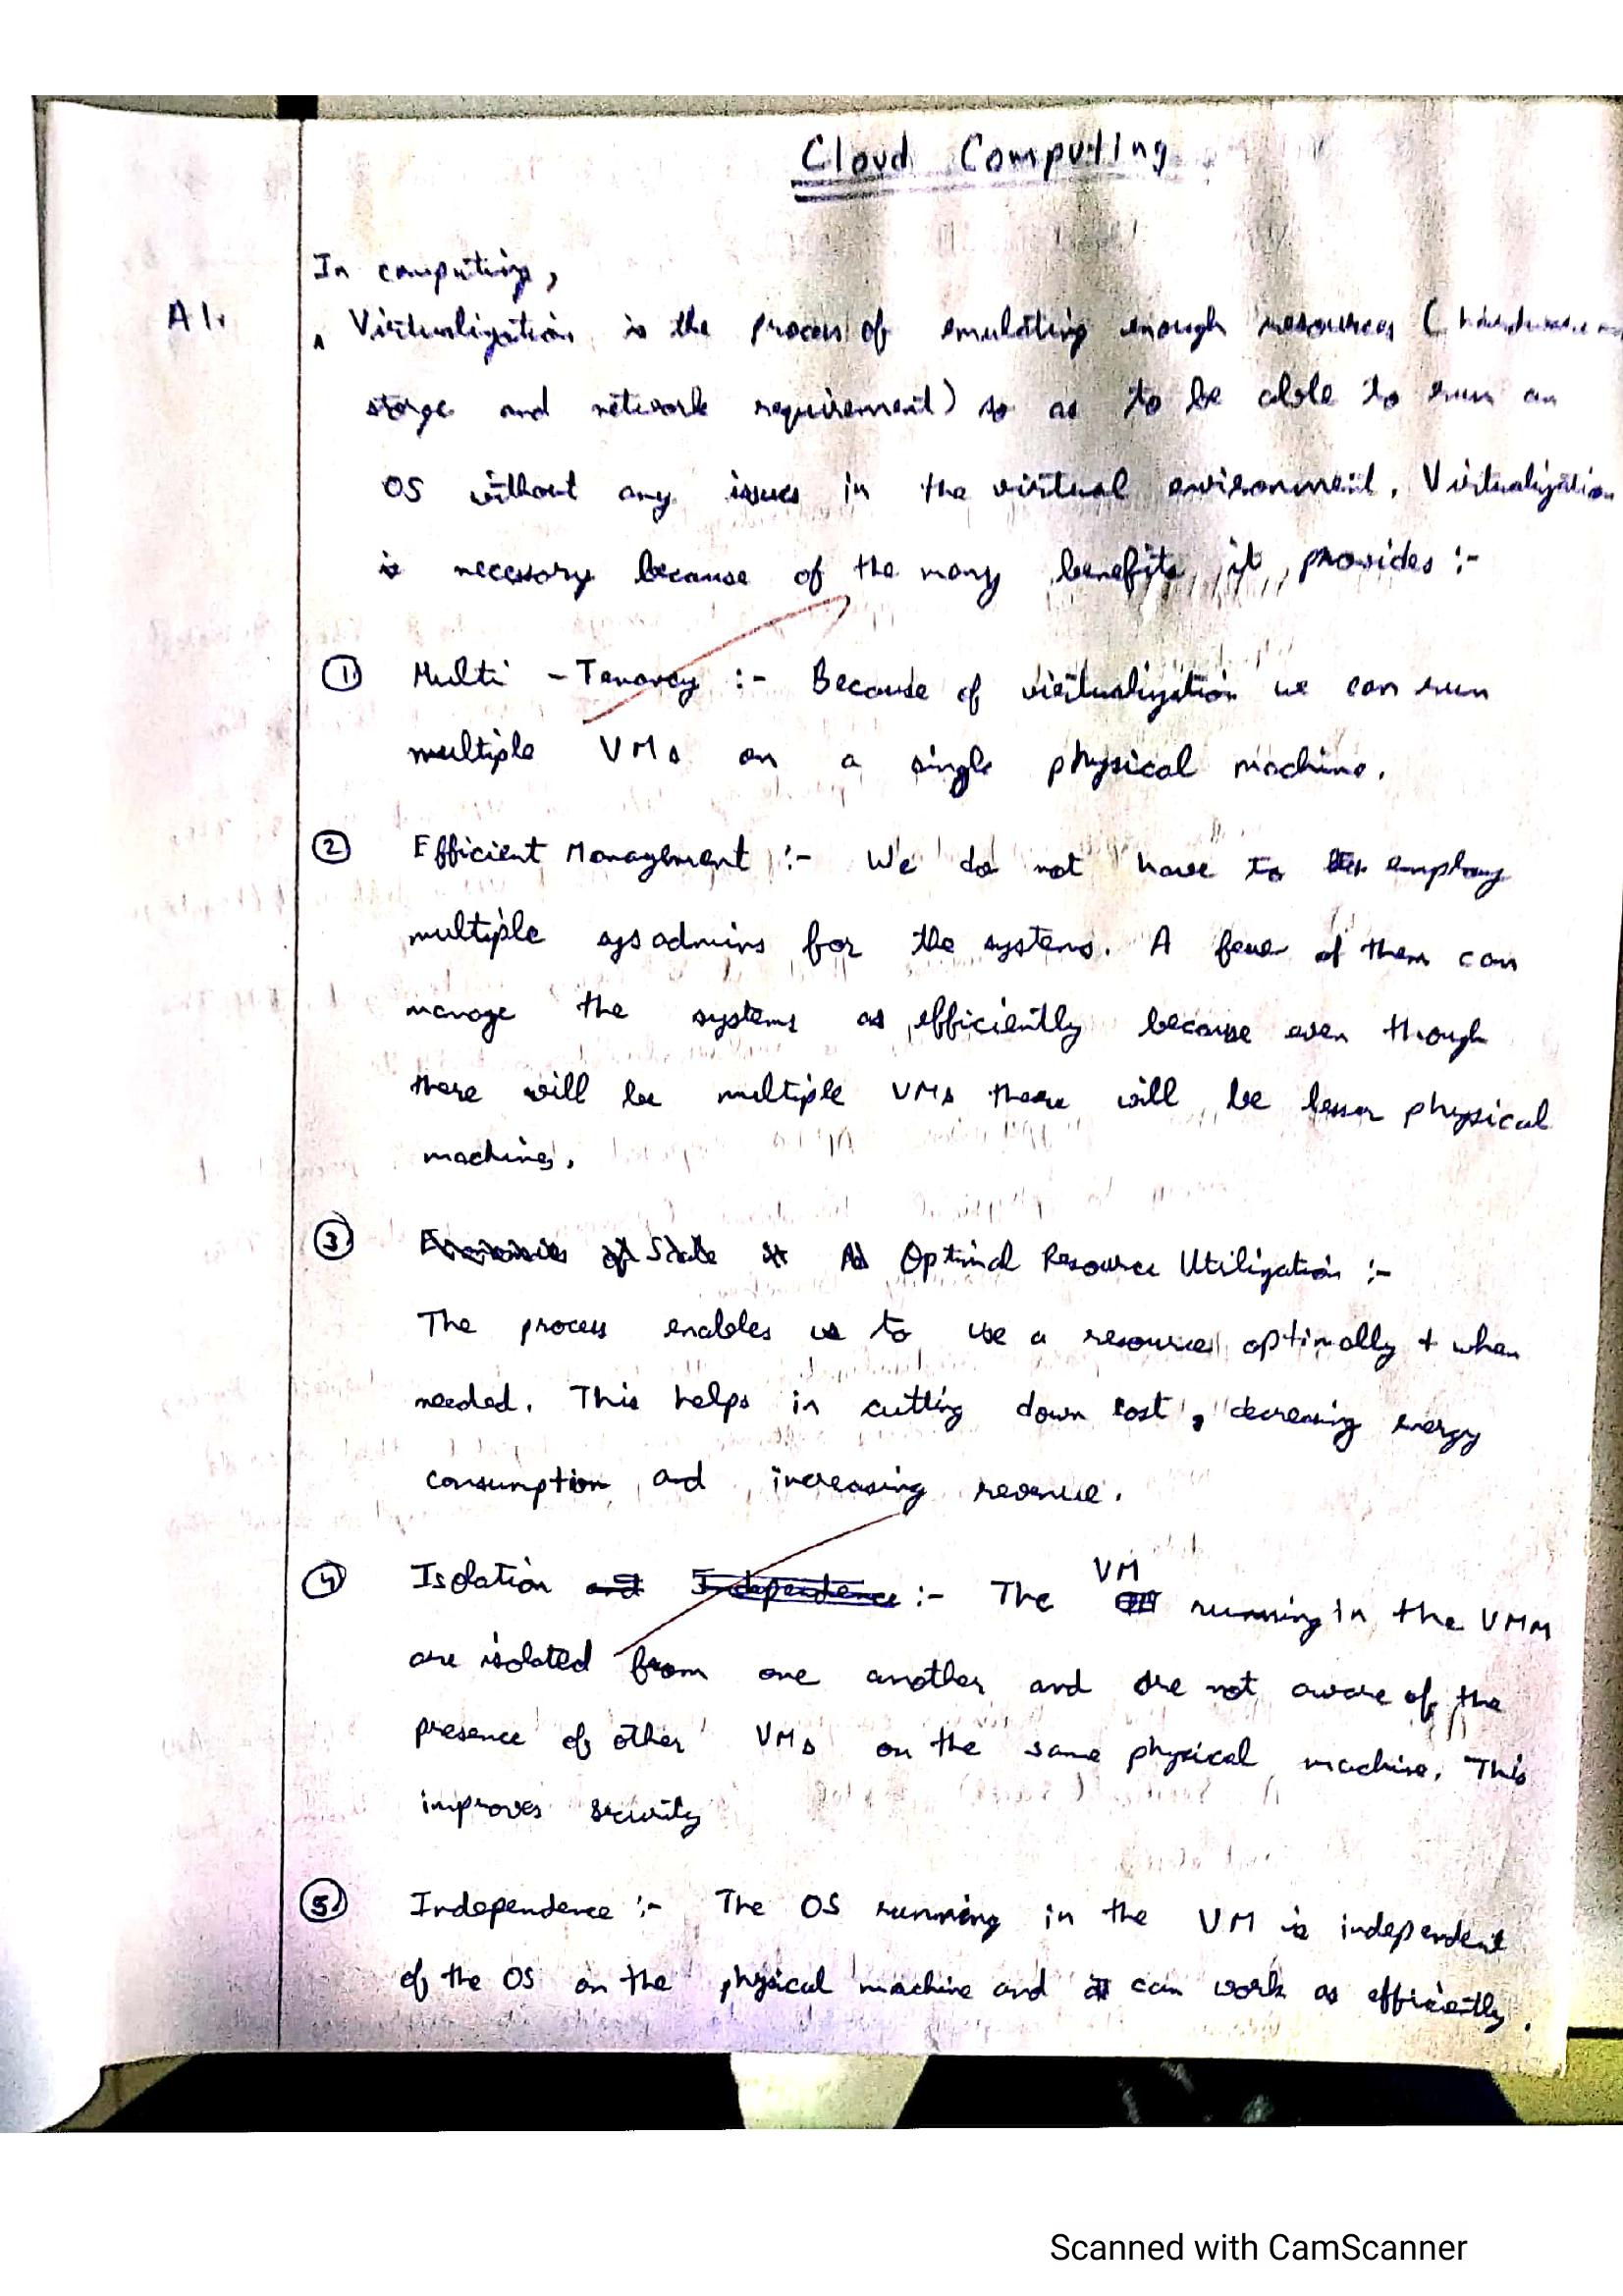 Cloud Computing
In computing,
A1. ^ Virtualization is the process of emulating enough resources (hardware
storge and network requirement) so as to be able to run an
OS without any issues in the virtual environment. Virtualization
is necessary because of the many benefits it provides :-
① Multi - Tenancy :- Because of virtualization we can run
multiple VMs on a single physical machine.
② Efficient Management :- We do not have to employ
multiple sys admins for the systems. A few of them can
manage the systems as efficiently because even though
there will be multiple VMs there will be lesser physical
machines.
③ Economies of Scale Optimal Resource Utilization :-
The process enables us to use a resource optimally + when
needed. This helps in cutting down cost, decreasing energy
consumption and increasing revenue.
VM
④ Isolation and Independence :- The running in the VMM
are isolated from one another and are not aware of the
presence of other VMs on the same physical machine. This
improves security
⑤ Independence :- The OS running in the VM is independent
of the OS on the physical machine and can work as efficiently.
Scanned with CamScanner